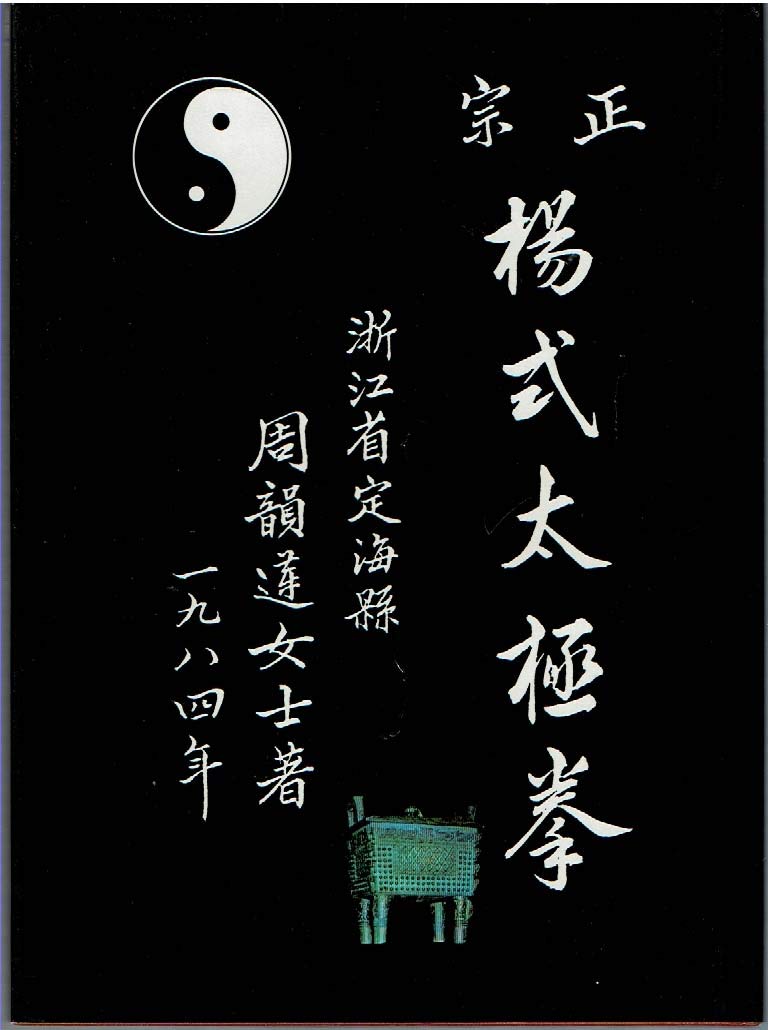 正宗
楊式太極拳
浙江省定海縣
周韻蓮女士著
一九八四年